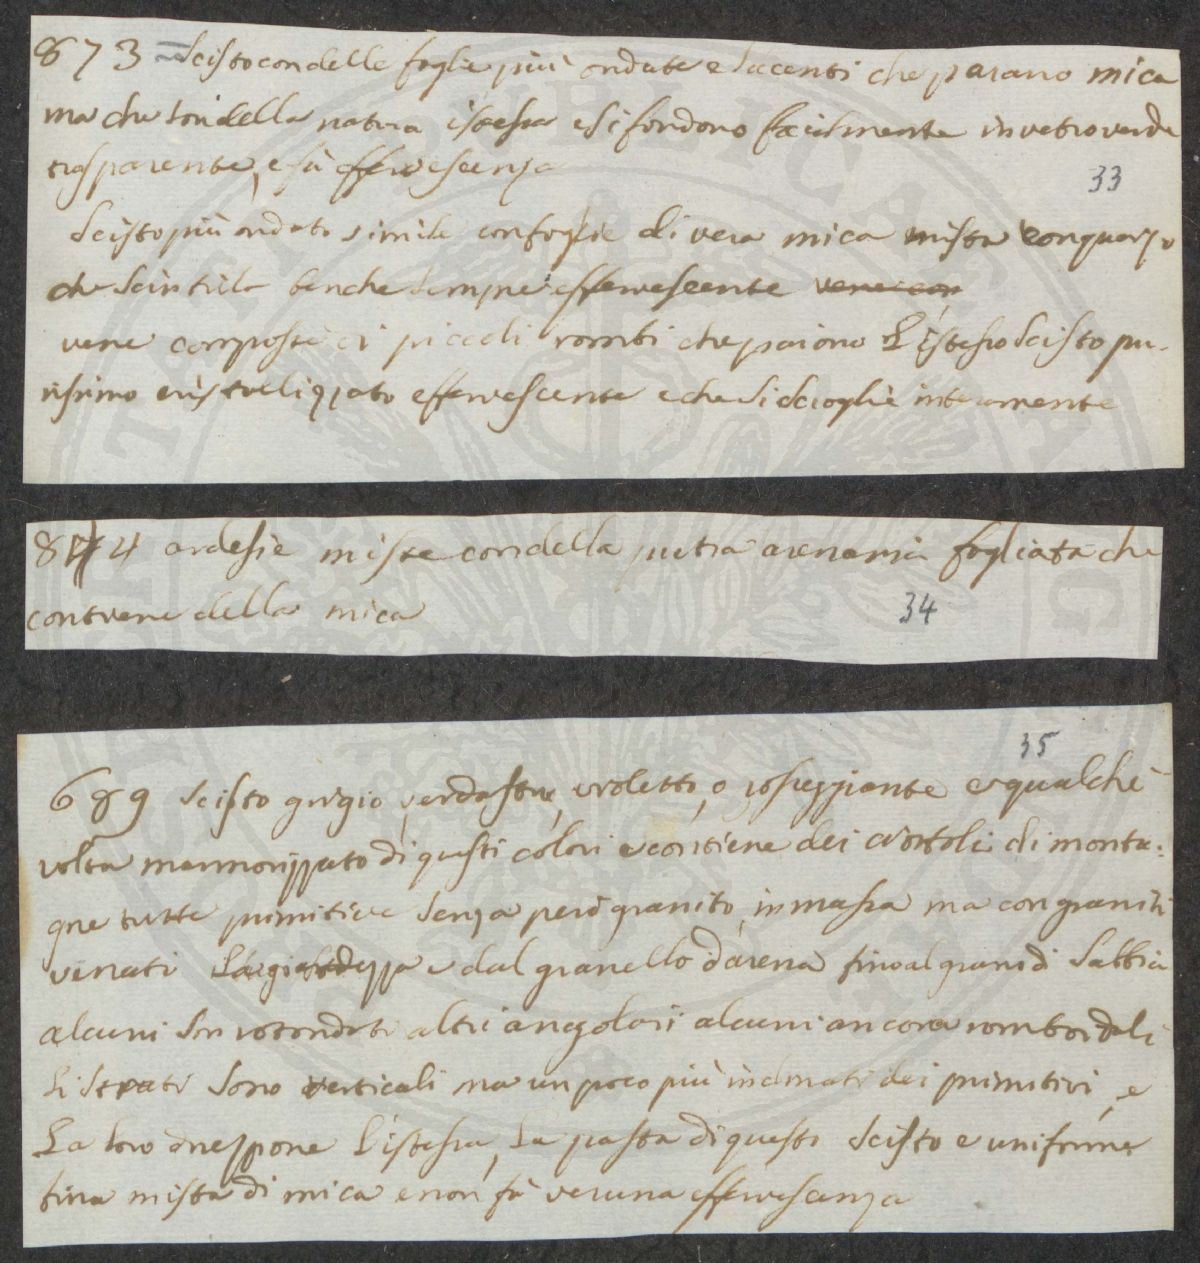 873 = Scisto con delle foglie più ondate e lucenti che parano mica
ma che son della natura istessa e si fondono facilmente in vetro verde
trasparente, e fà effervescenza
33
Scisto più ondato simile con foglie di vera mica mista con quarzo
che scintilla benche sempre effervescente
vene composte di piccoli rombi che paiono L'istesso Scisto pu-
rissimo cristallizzato effervescente e che si scioglie interamente
874 ardesie miste con della pietra arenaria fogliata che
contiene della mica
34
35
689 scisto grigio, verdastre, violetto, o rosseggiante e qualche
volta marmorizzato di questi colori e contiene dei ciottoli di monta=
gne tutte primitive senza però granito in massa ma con graniti
venati e dal granello d'arena fino al gran di Sabbia
alcuni son rotondati altri angolari alcuni ancora romboidali
Li strati sono verticali ma un poco più inclinati dei primitivi, e
La loro direzzione L'istessa, La pasta di questo scisto e uniforme
fina mista di mica e non fà veruna effervescenza